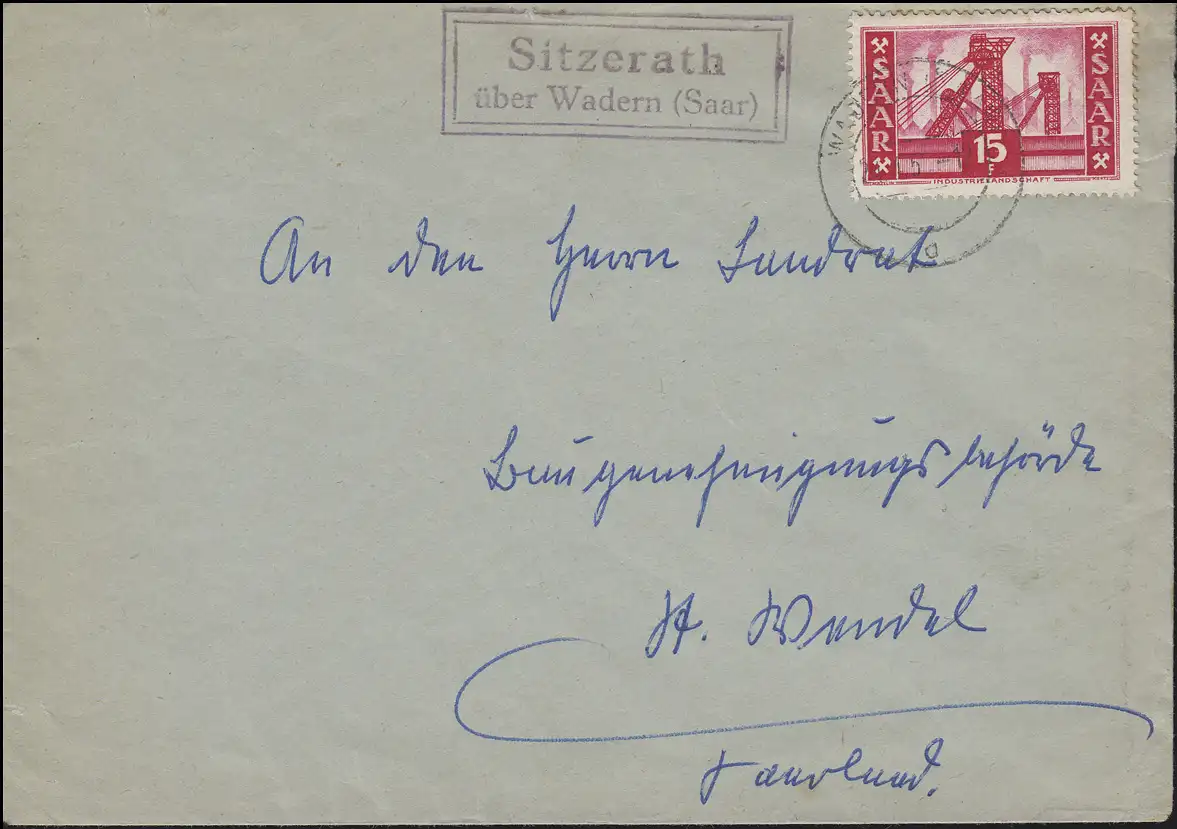 Sitzerath
über Wadern (Saar)
SAAR
SAAR
15
F
INDUSTRIELANDSCHAFT
d
An den Herrn Landrat
Baugenehmigungsbehörde
St. Wendel
Saarland.